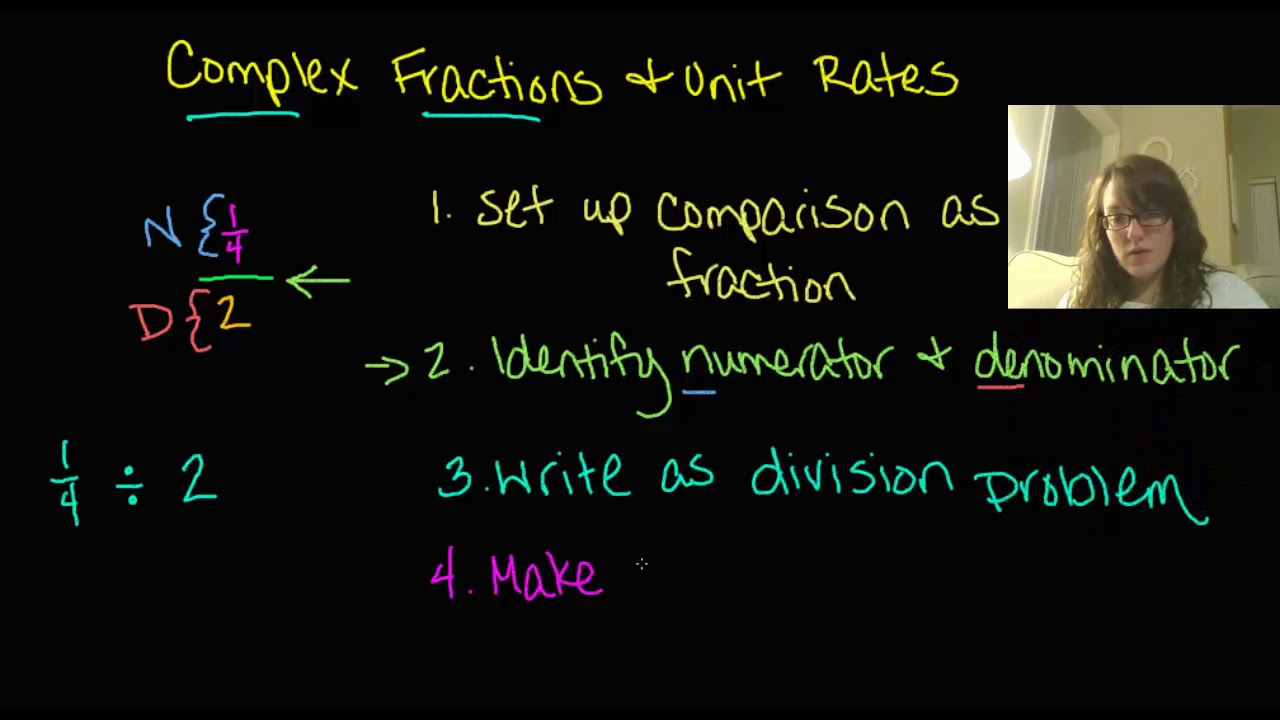 Complex Fractions & Unit Rates
N { 1/4
D { 2
1. Set up comparison as
fraction
→ 2. Identify numerator & denominator
1/4 ÷ 2
3. Write as division problem
4. Make